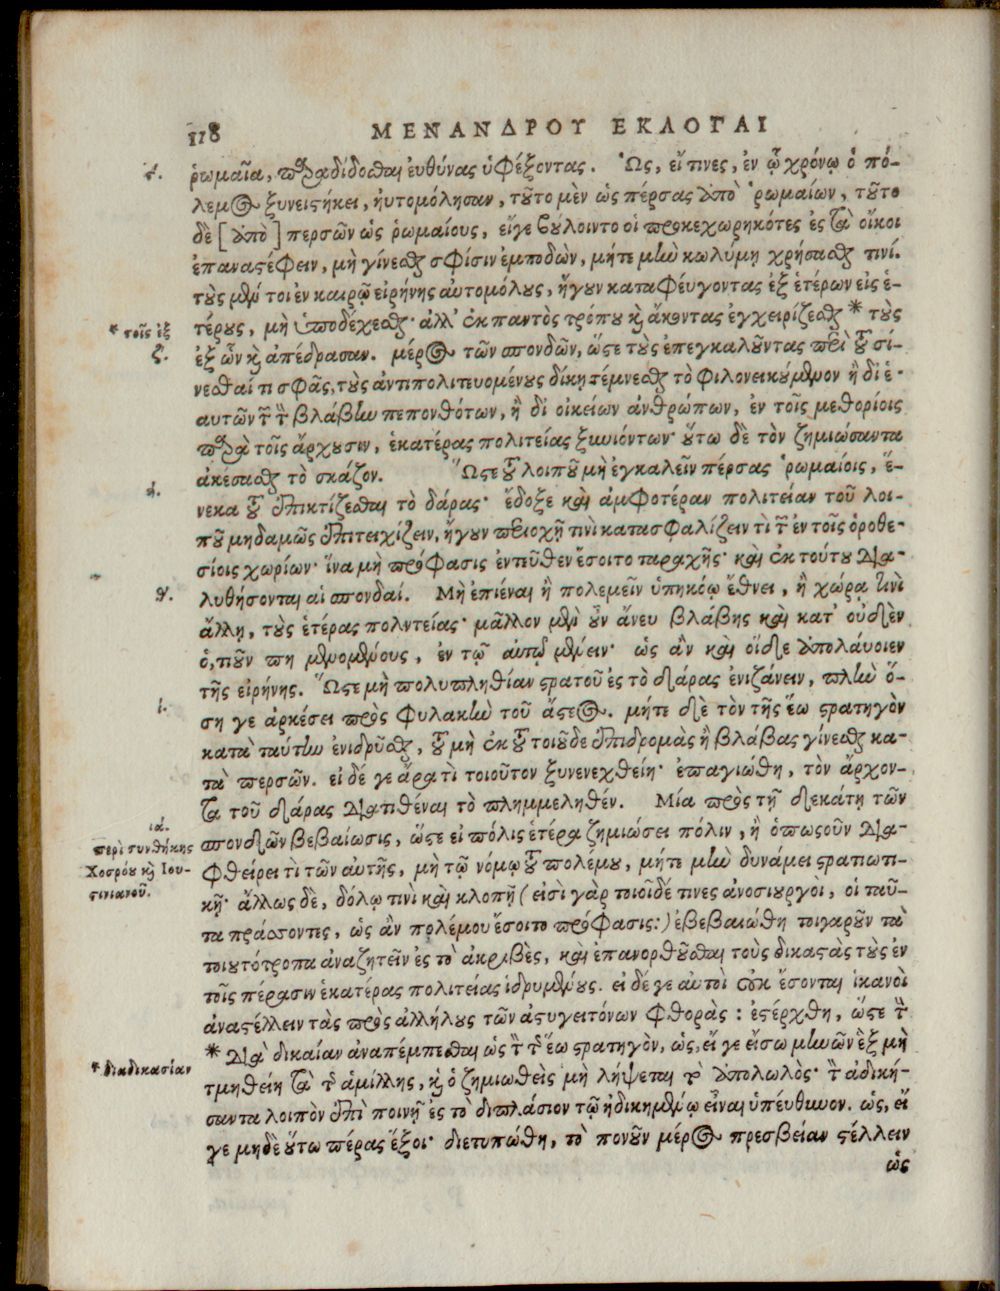 118 ΜΕΝΑΝΔΡΟΥ ΕΚΛΟΓΑΙ
ῥωμαῖα, παραδίδοσθαι εὐθύνας ὑφέξοντας. Ὡς, εἴ τινες, ἐν ᾧ χρόνῳ ὁ πό-
λεμος ξυνειστήκει, ηὐτομόλησαν, τοῦτο μὲν ὡς πέρσας ἀπὸ ῥωμαίων, τοῦτο
δὲ [ἀπὸ] περσῶν ὡς ῥωμαίους, εἴγε βούλοιντο οἱ προκεχωρηκότες ἐς τὰ οἴκοι
ἐπαναστέφειν, μὴ γίνεσθαι σφίσιν ἐμποδὼν, μήτε μὴν κωλύμῃ χρήσασθαι τινί.
τοὺς μέν τοι ἐν καιρῷ εἰρήνης αὐτομόλους, ἤγουν καταφεύγοντας ἐξ ἑτέρων εἰς ἑ-
τέρους, μὴ ὑποδέχεσθαι· ἀλλ' ἐκ παντὸς τρόπου καὶ ἄκοντας ἐγχειρίζεσθαι * τοὺς
* τοῖς ἐξ
ἐξ ὧν καὶ ἀπέδρασαν. μέρος τῶν σπονδῶν, ὥστε τοὺς ἐπεγκαλοῦντας περὶ τοῦ σί-
ζ.
νεσθαί τι σφᾶς, τοὺς ἀντιπολιτευομένους δίκῃ τέμνεσθαι τὸ φιλονεικούμενον ἢ δι' ἑ-
αυτῶν τῶν τὴν βλάβην πεπονθότων, ἢ δι' οἰκείων ἀνθρώπων, ἐν τοῖς μεθορίοις
παρὰ τοῖς ἄρχουσιν, ἑκατέρας πολιτείας ξυνιόντων· οὕτω δὲ τὸν ζημιώσαντα
ἀκέσασθαι τὸ σκάζον. Ὥστε τοῦ λοιποῦ μὴ ἐγκαλεῖν πέρσας ῥωμαίοις, ἕ-
η.
νεκα τοῦ ἐπικτίζεσθαι τὸ δάρας· ἔδοξε καὶ ἀμφοτέραν πολιτείαν τοῦ λοι-
ποῦ μηδαμῶς ἐπιτειχίζειν, ἤγουν περιοχῇ τινὶ κατασφαλίζειν τὶ τῶν ἐν τοῖς ὁροθε-
σίοις χωρίων· ἵνα μὴ πρόφασις ἐντεῦθεν ἔσοιτο ταραχῆς· καὶ ἐκ τούτου δια-
λυθήσονται αἱ σπονδαί. Μὴ ἐπιέναι ἢ πολεμεῖν ὑπηκόῳ ἔθνει, ἢ χώρᾳ τινὶ
θ.
ἄλλῃ, τοὺς ἑτέρας πολντείας· μᾶλλον μὲν οὖν ἄνευ βλάβης καὶ κατ' οὐδὲν
ὁ, τιοῦν πη μενομένους, ἐν τῷ αὐτῷ μένειν· ὡς ἂν καὶ οἵδε ἀπολαύοιεν
τῆς εἰρήνης. Ὥστε μὴ πολυπληθίαν στρατοῦ ἐς τὸ δάρας ἐνιζάνειν, πλὴν ὅ-
ι.
ση γε ἀρκέσει πρὸς φυλακὴν τοῦ ἄστεος. μήτε δὲ τὸν τῆς ἕω στρατηγὸν
κατὰ ταύτην ἐνιδρῦσθαι, τοῦ μὴ ἐκ τοῦ τοιοῦδε ἐπιδρομὰς ἢ βλάβας γίνεσθαι κα-
τὰ περσῶν. εἰ δέ γε ἄρα τὶ τοιοῦτον ξυνενεχθείη· ἐπαγιώθη, τὸν ἄρχον-
τα τοῦ δάρας διατιθέναι τὸ πλημμεληθέν. Μία πρὸς τῇ δεκάτῃ τῶν
ια.
σπονδῶν βεβαίωσις, ὥστε εἰ πόλις ἑτέρα ζημιώσει πόλιν, ἢ ὁπωσοῦν δια-
περὶ συνθήκης
Χοσρόου καὶ Ιου-
στινιανοῦ.
φθείρει τὶ τῶν αὐτῆς, μὴ τῷ νόμῳ τοῦ πολέμου, μήτε μὴν δυνάμει στρατιωτι-
κῇ· ἄλλως δὲ, δόλῳ τινὶ καὶ κλοπῇ (εἰσὶ γὰρ τοιοίδέ τινες ἀνοσιουργοι, οἱ ταῦ-
τα πράσσοντες, ὡς ἂν πολέμου ἔσοιτο πρόφασις:) ἐβεβαιώθη τοιγαροῦν τὰ
τοιουτότροπα ἀναζητεῖν ἐς τὸ ἀκριβὲς, καὶ ἐπανορθοῦσθαι τοὺς δικαστὰς τοὺς ἐν
τοῖς πέρασιν ἑκατέρας πολιτείας ἱδρυμένους. εἰ δέ γε αὐτοὶ οὐκ ἔσονται ἱκανοὶ
ἀναστέλλειν τὰς πρὸς ἀλλήλους τῶν ἀστυγειτόνων φθορὰς: ἐστέρχθη, ὥστε τὴν
* διὰ δικαίαν ἀναπέμπεσθαι ὡς τὸν τῆς ἕω στρατηγὸν, ὡς, εἴ γε εἴσω μηνῶν ἓξ μὴ
* διαδικασίαν
τμηθείη τὰ τῆς ἁμίλλης, καὶ ὁ ζημιωθεὶς μὴ λήψεται τὸ ἀπολωλός· τὸν ἀδική-
σαντα λοιπὸν ἐπὶ ποινῇ ἐς τὸ διπλάσιον τῷ ἠδικημένῳ εἶναι ὑπέυθυνον. ὡς, εἴ
γε μηδὲ οὕτω πέρας ἕξοι· διετυπώθη, τὸ πονοῦν μέρος πρεσβείαν στέλλειν
ὡς